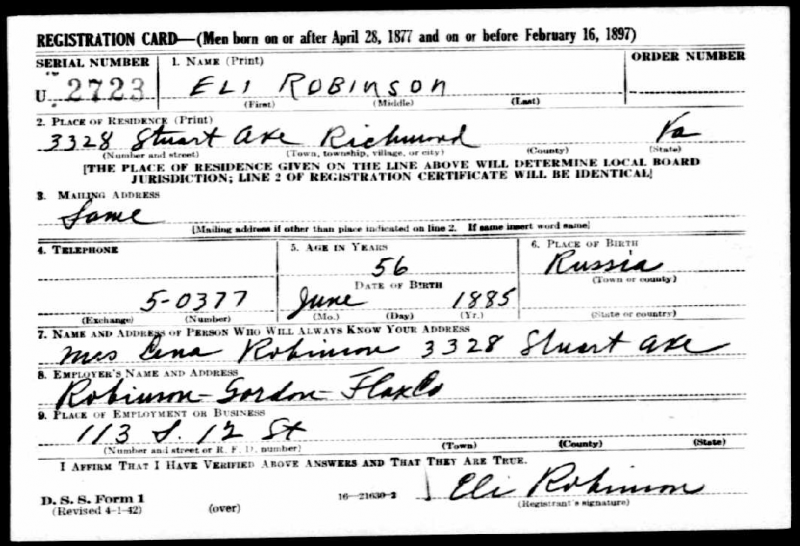 REGISTRATION CARD—(Men born on or after April 28, 1877 and on or before February 16, 1897)
SERIAL NUMBER 1. NAME (Print) ORDER NUMBER
U 2723 ELI ROBINSON
(First) (Middle) (Last)
2. PLACE OF RESIDENCE (Print)
3328 Stuart Ave Richmond Va
(Number and street) (Town, township, village, or city) (County) (State)
[THE PLACE OF RESIDENCE GIVEN ON THE LINE ABOVE WILL DETERMINE LOCAL BOARD
JURISDICTION; LINE 2 OF REGISTRATION CERTIFICATE WILL BE IDENTICAL]
3. MAILING ADDRESS
Same
[Mailing address if other than place indicated on line 2. If same insert word same]
4. TELEPHONE 5. AGE IN YEARS 6. PLACE OF BIRTH
56 Russia
DATE OF BIRTH (Town or county)
5-0377 June 1885
(Exchange) (Number) (Mo.) (Day) (Yr.) (State or country)
7. NAME AND ADDRESS OF PERSON WHO WILL ALWAYS KNOW YOUR ADDRESS
Mrs Lena Robinson 3328 Stuart Ave
8. EMPLOYER'S NAME AND ADDRESS
Robinson-Gordon- Co
9. PLACE OF EMPLOYMENT OR BUSINESS
113 S. 12 St
(Number and street or R. F. D. number) (Town) (County) (State)
I AFFIRM THAT I HAVE VERIFIED ABOVE ANSWERS AND THAT THEY ARE TRUE.
D. S. S. Form 1 16—21630-2 Eli Robinson
(Revised 4-1-42) (over) (Registrant's signature)